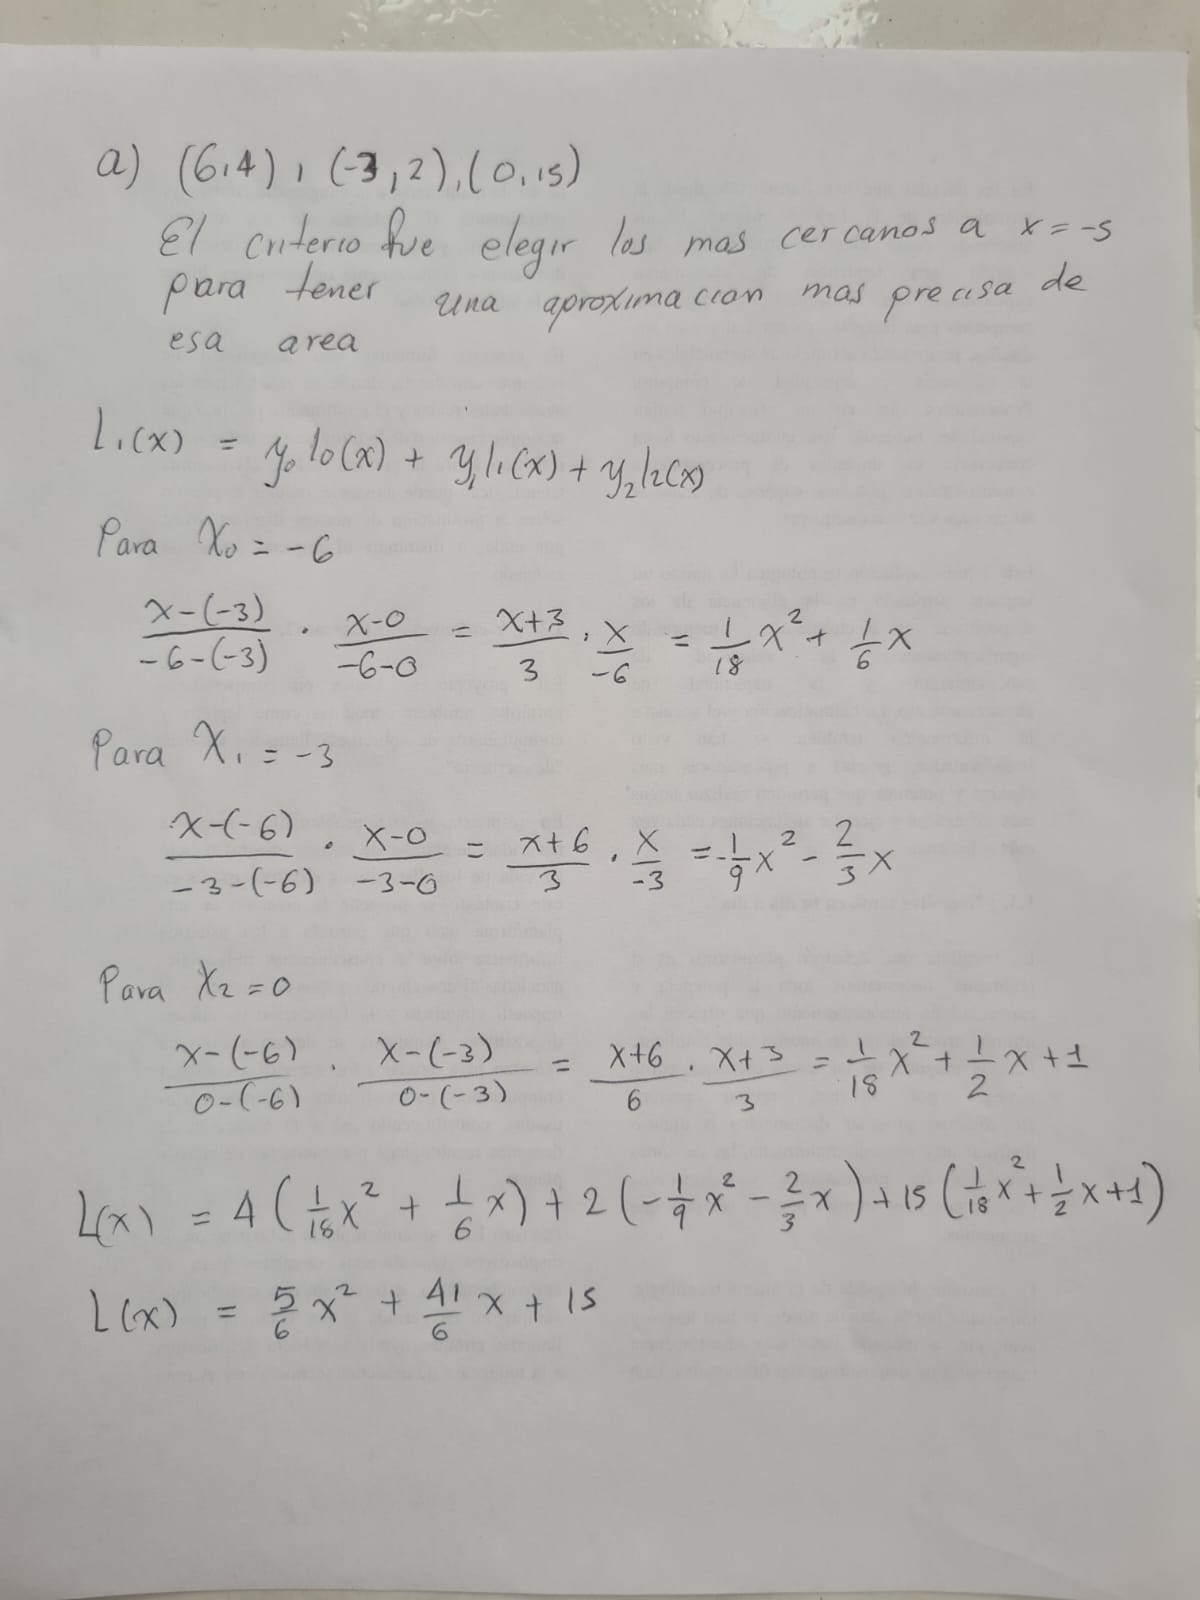 a) (6,4), (-3,2), (0,15)
El criterio fue elegir los mas cercanos a x = -5
para tener una aproximacion mas precisa de
esa area
L₁(x) = y₀l₀(x) + y₁l₁(x) + y₂l₂(x)
Para X₀ = -6
x-(-3)/-6-(-3) · x-0/-6-0 = x+3/3 · x/-6 = 1/18 x² + 1/6 x
Para X₁ = -3
x-(-6)/-3-(-6) · x-0/-3-0 = x+6/3 · x/-3 = -1/9 x² - 2/3 x
Para X₂ = 0
x-(-6)/0-(-6) · x-(-3)/0-(-3) = x+6/6 · x+3/3 = 1/18 x² + 1/2 x + 1
L(x) = 4(1/18 x² + 1/6 x) + 2(-1/9 x² - 2/3 x) + 15(1/18 x² + 1/2 x + 1)
L(x) = 5/6 x² + 41/6 x + 15